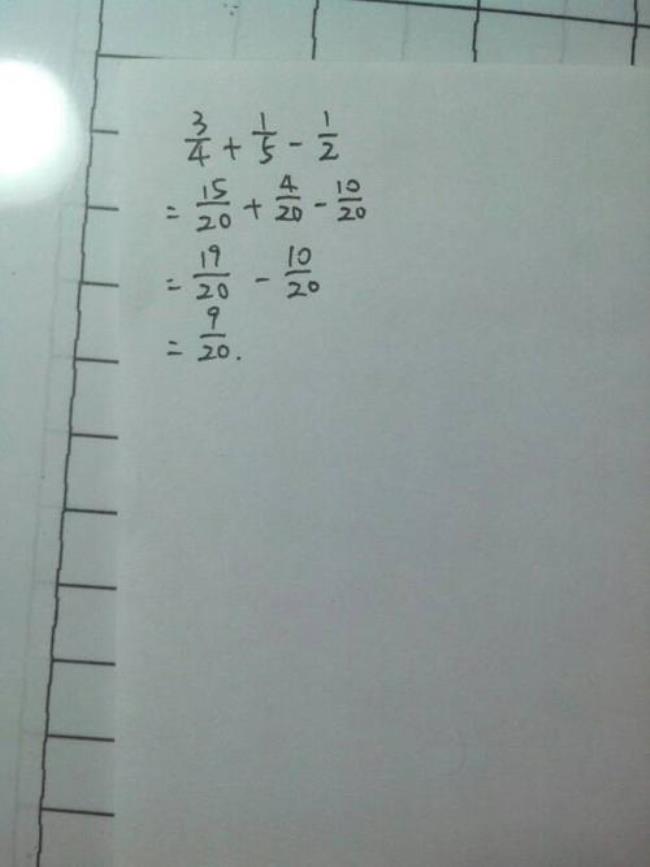 3/4 + 1/5 - 1/2
= 15/20 + 4/20 - 10/20
= 19/20 - 10/20
= 9/20.